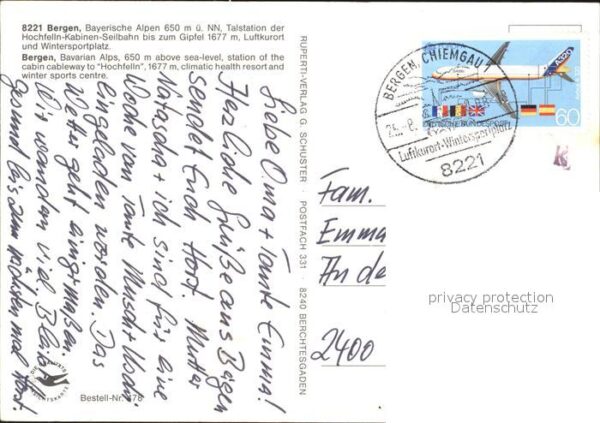 8221 Bergen, Bayerische Alpen 650 m ü. NN, Talstation der
Hochfelln-Kabinen-Seilbahn bis zum Gipfel 1677 m, Luftkurort
und Wintersportplatz.
Bergen, Bavarian Alps, 650 m above sea-level, station of the
cabin cableway to "Hochfelln", 1677 m, climatic health resort and
winter sports centre.
Liebe Oma + Tante Emma!
Herzliche Grüße aus Bergen
sendet Euch Horst. Mutter,
Natascha + ich sind für eine
Woche von Tante +
eingeladen worden. Das
Wetter geht einigermaßen.
Wir wandern viel. Bleibt
gesund bis zum nächsten mal Horst.
Bestell-Nr. 478
RUPERTI-VERLAG G. SCHUSTER · POSTFACH 331 · 8240 BERCHTESGADEN
BERGEN, CHIEMGAU
Luftkurort-Wintersportplatz
8221
A320
60
DEUTSCHE BUNDESPOST
Fam.
Emma
An de
2400
privacy protection
Datenschutz